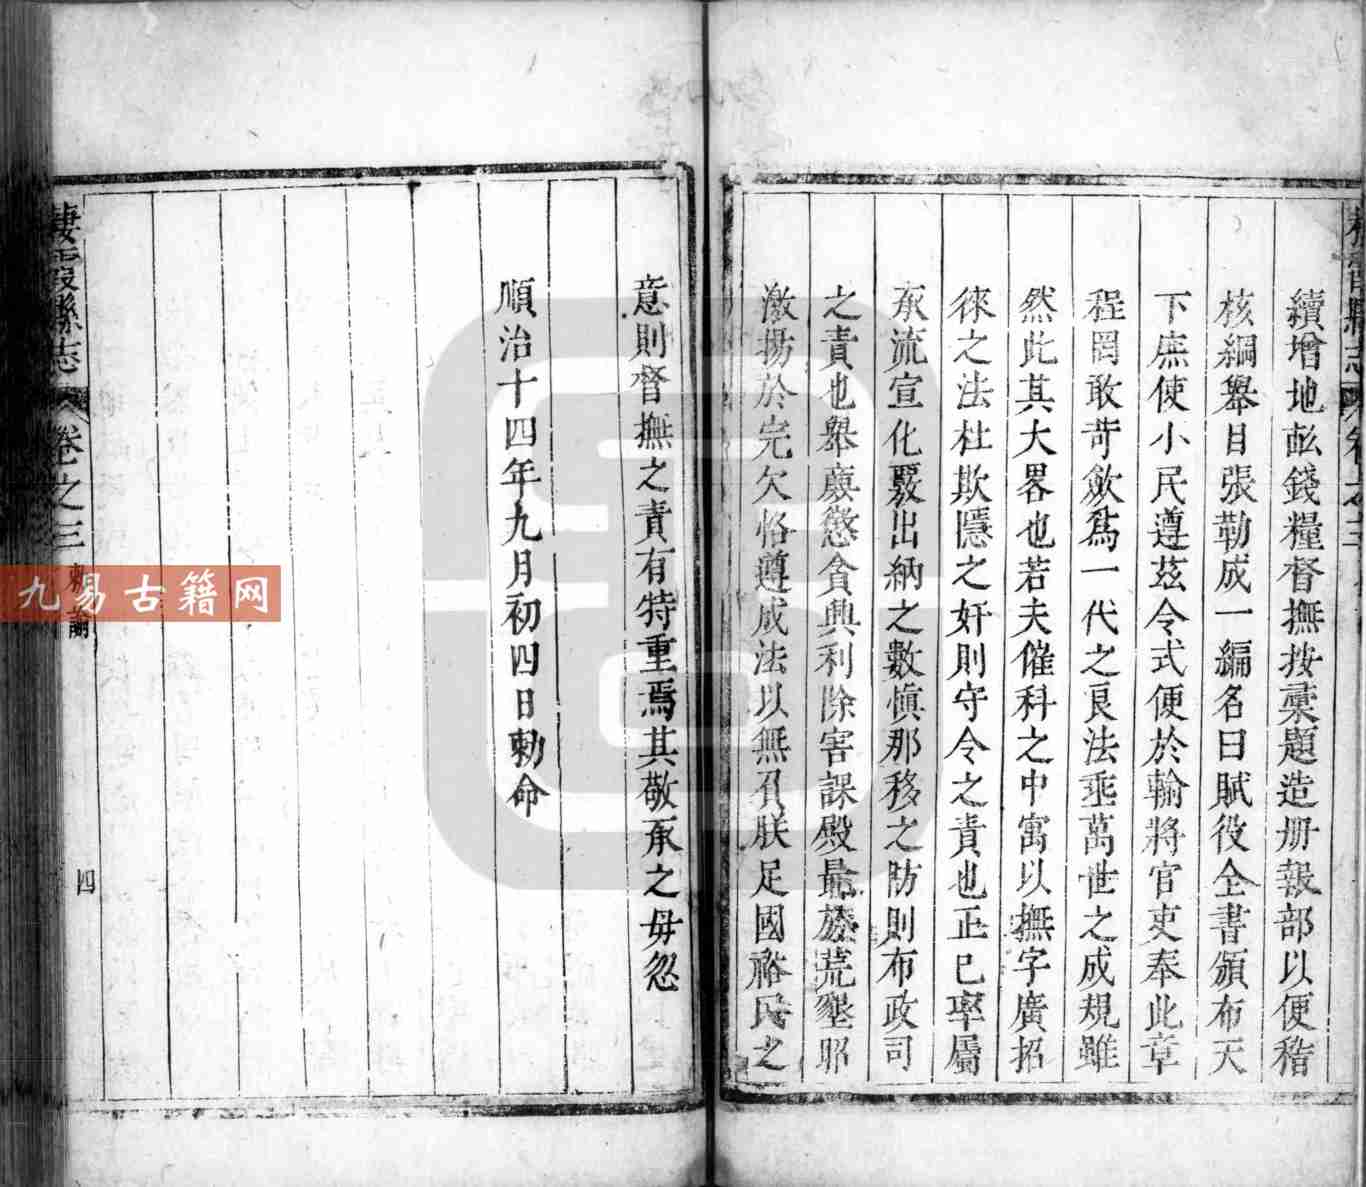 續增地畝錢糧督撫按彚題造册報部以便稽
核綱舉目張勒成一編名曰賦役全書頒布天
下庶使小民遵兹令式便於輸將官吏奉此章
程罔敢苛歛爲一代之良法垂萬世之成規雖
然此其大畧也若夫催科之中寓以撫字廣招
徠之法杜欺隱之奸則守令之責也正己率屬
承流宣化覈出納之數慎那移之防則布政司
之責也舉廉懲貪興利除害課殿最於荒墾昭
激揚於完欠恪遵成法以無孤朕足國裕民之
意則督撫之責有特重焉其敬承之毋忽
順治十四年九月初四日勅命
棲霞縣志
卷之三
勅諭
四
九易古籍网